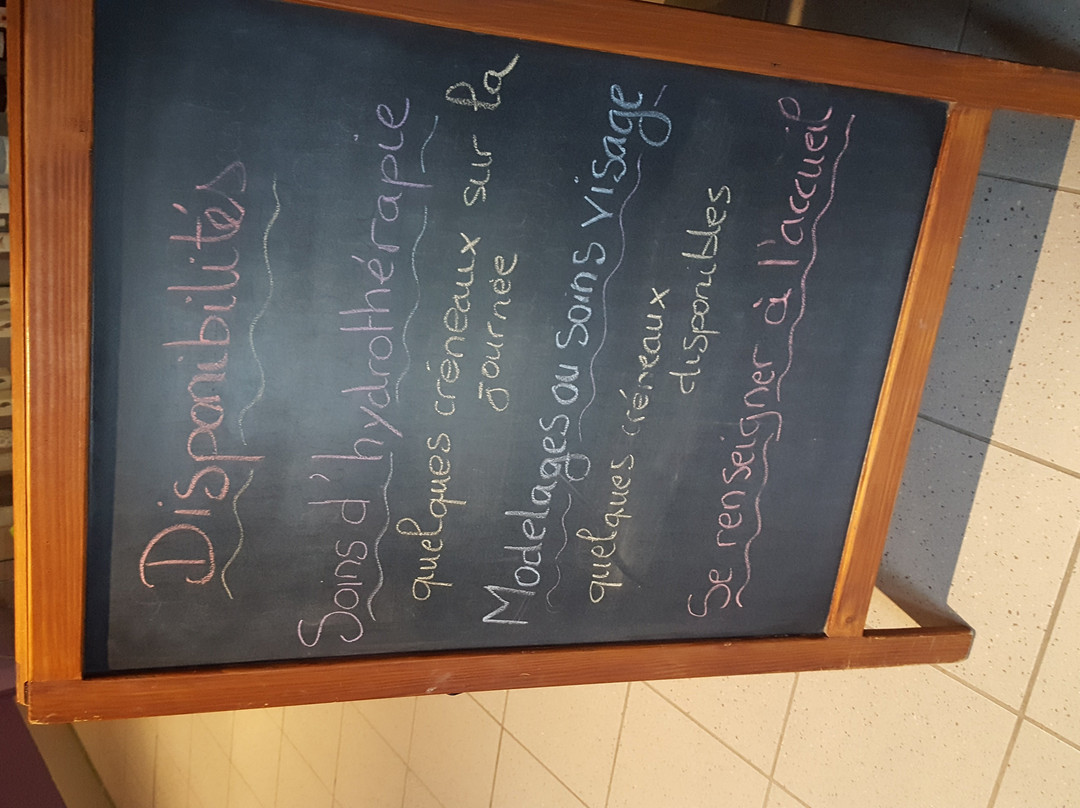 Disponibilités
Soins d'hydrothérapie
quelques créneaux sur la
journée
Modelages ou soins visage
quelques créneaux
disponibles
Se renseigner à l'accueil